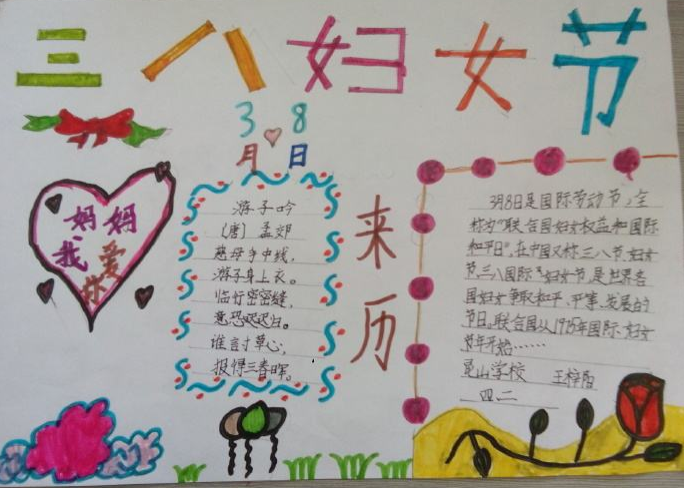 三八妇女节
3月8日
妈妈
我爱
你
游子吟
(唐) 孟郊
慈母手中线,
游子身上衣。
临行密密缝,
意恐迟迟归。
谁言寸草心,
报得三春晖。
来历
3月8日是国际劳动节,全
称为“联合国妇女权益和国际
和平日”,在中国又称三八节、妇女
节、三八国际妇女节,是世界各
国妇女争取和平、平等、发展的
节日,联合国从1975年国际妇女
节年开始……
学校 王梓
四二